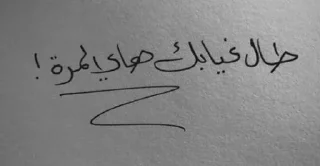 طال غيابك هاي المرة !